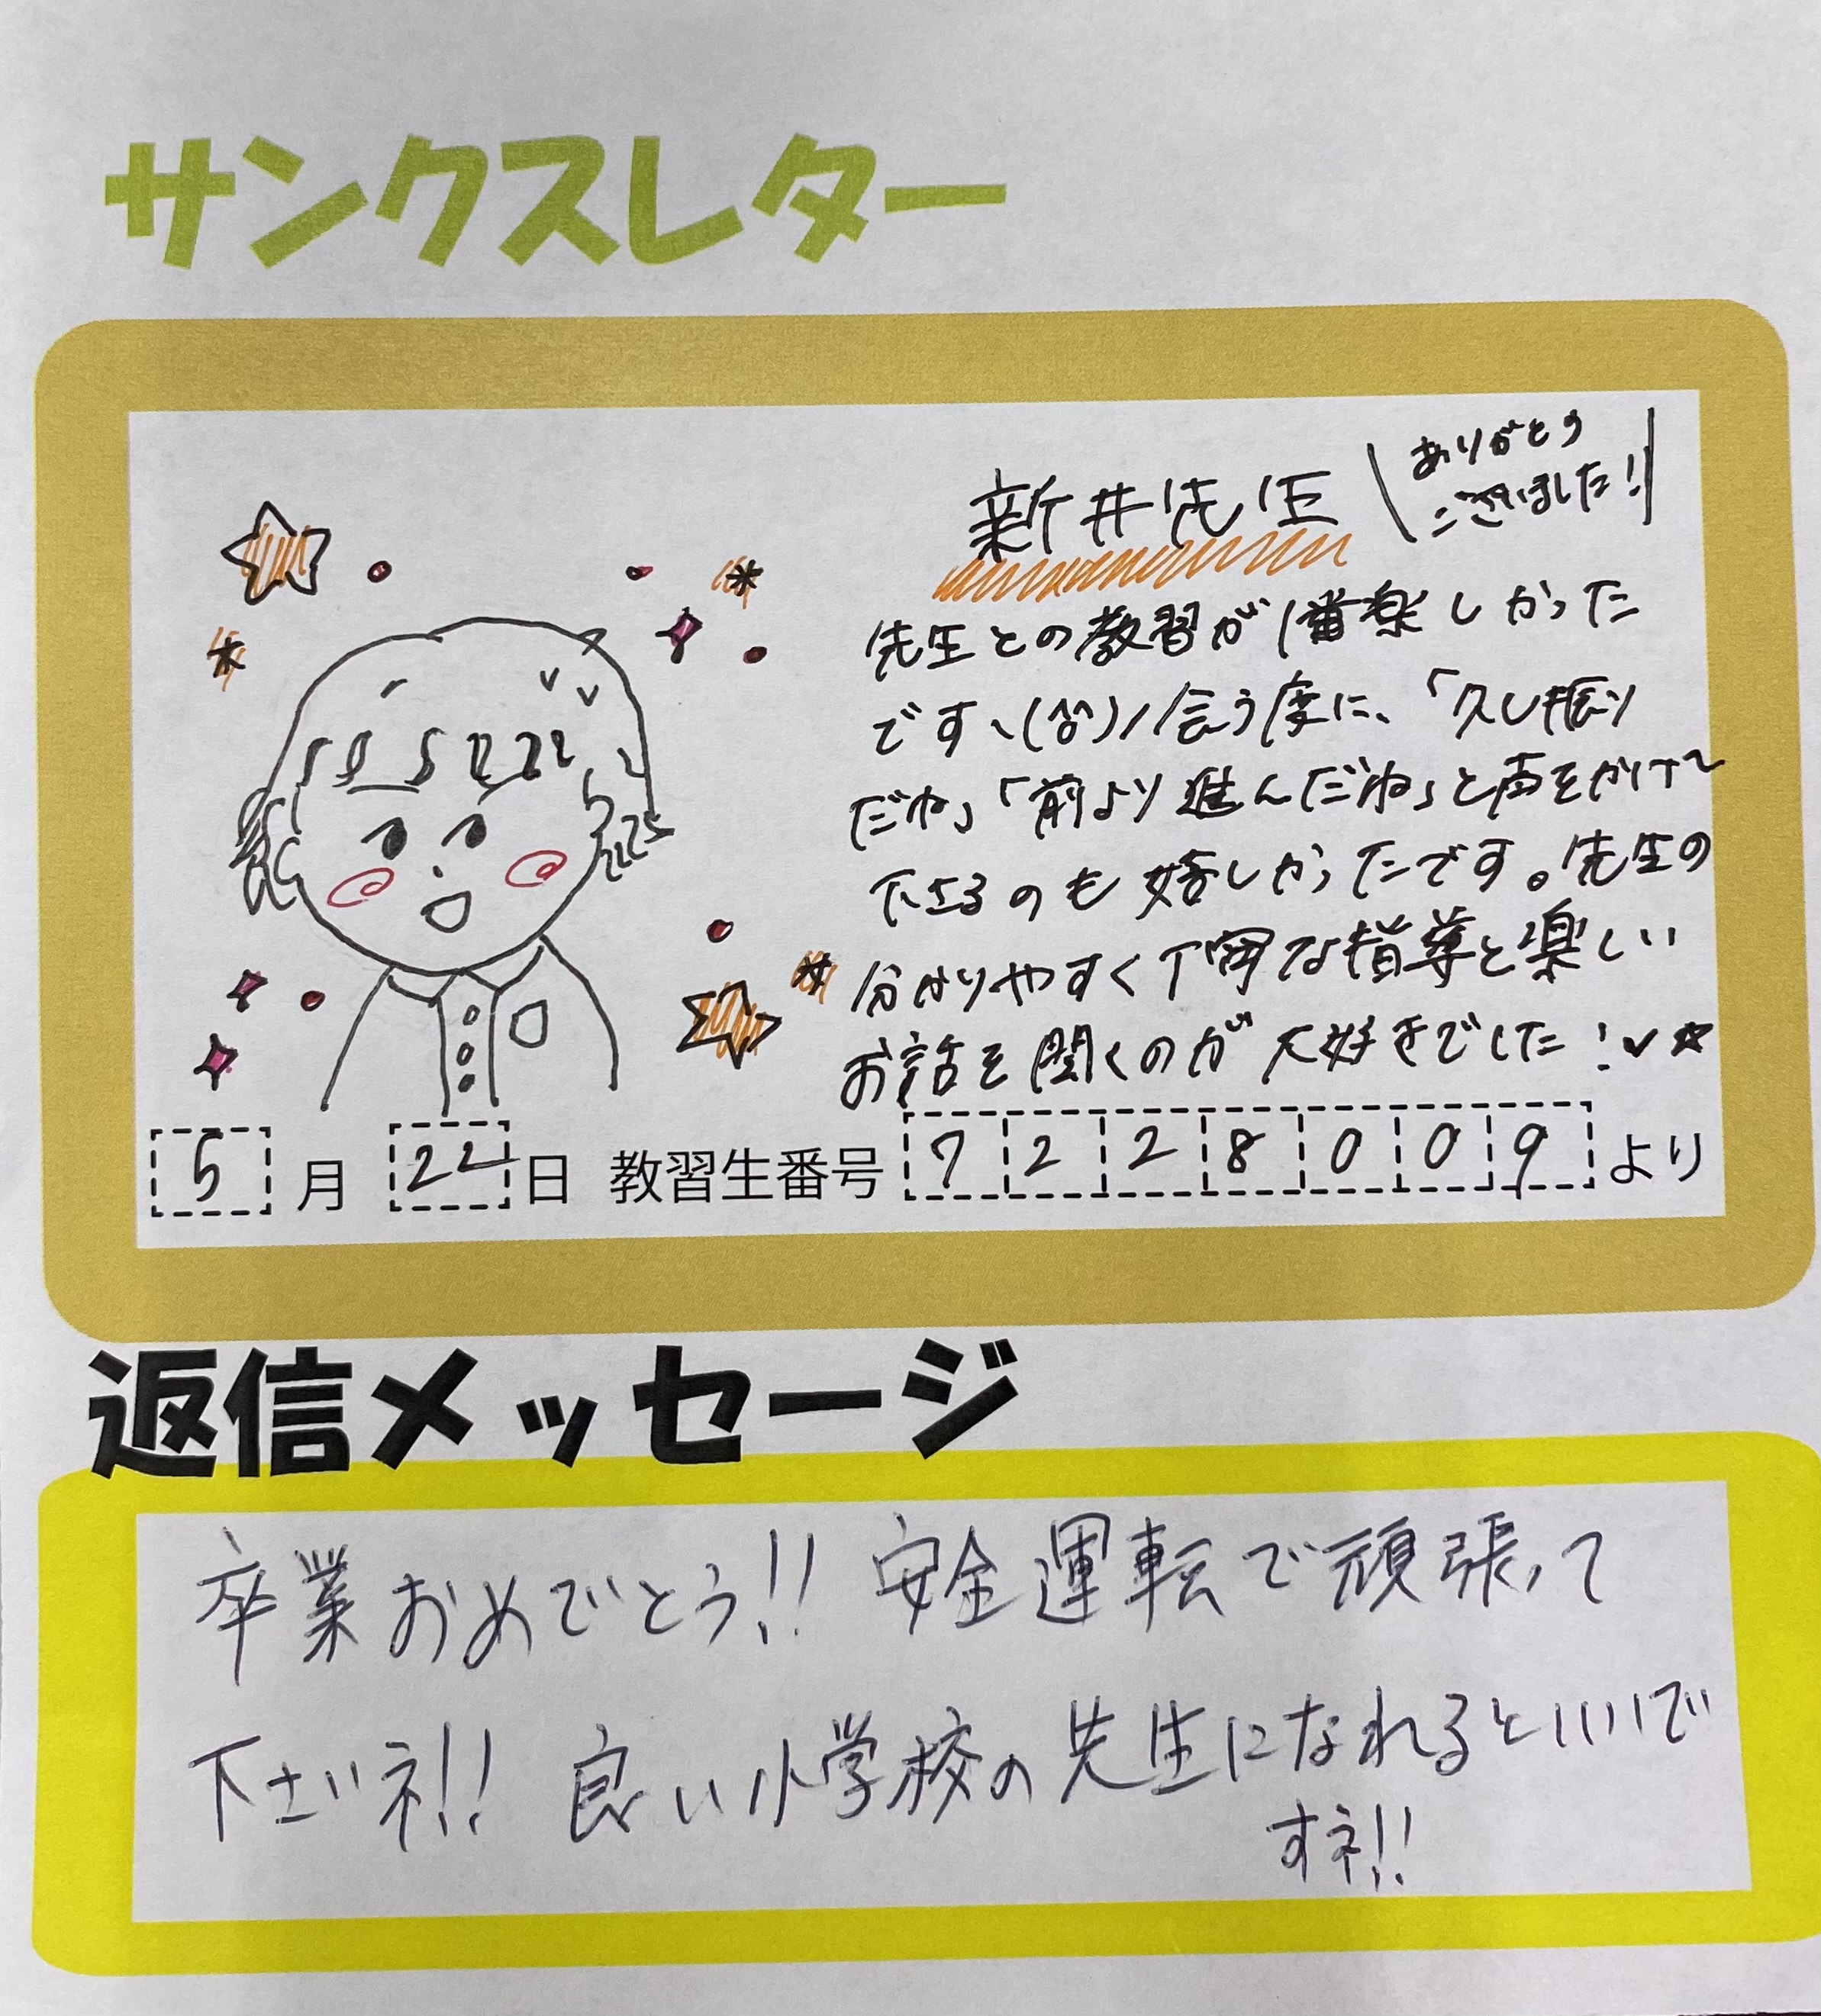 サンクスレター
新井先生
ありがとう
ございました!
先生との教習が1番楽しかった
です ヽ(^^)ノ 会う度に、「久し振り
だね」「前より進んだね」と声をかけて
下さるのも嬉しかったです。先生の
分かりやすく丁寧な指導と楽しい
お話を聞くのが大好きでした!✓☆
5月 22日 教習生番号 7228009 より
返信メッセージ
卒業おめでとう!! 安全運転で頑張って
下さいネ!! 良い小学校の先生になれるといいで
すネ!!